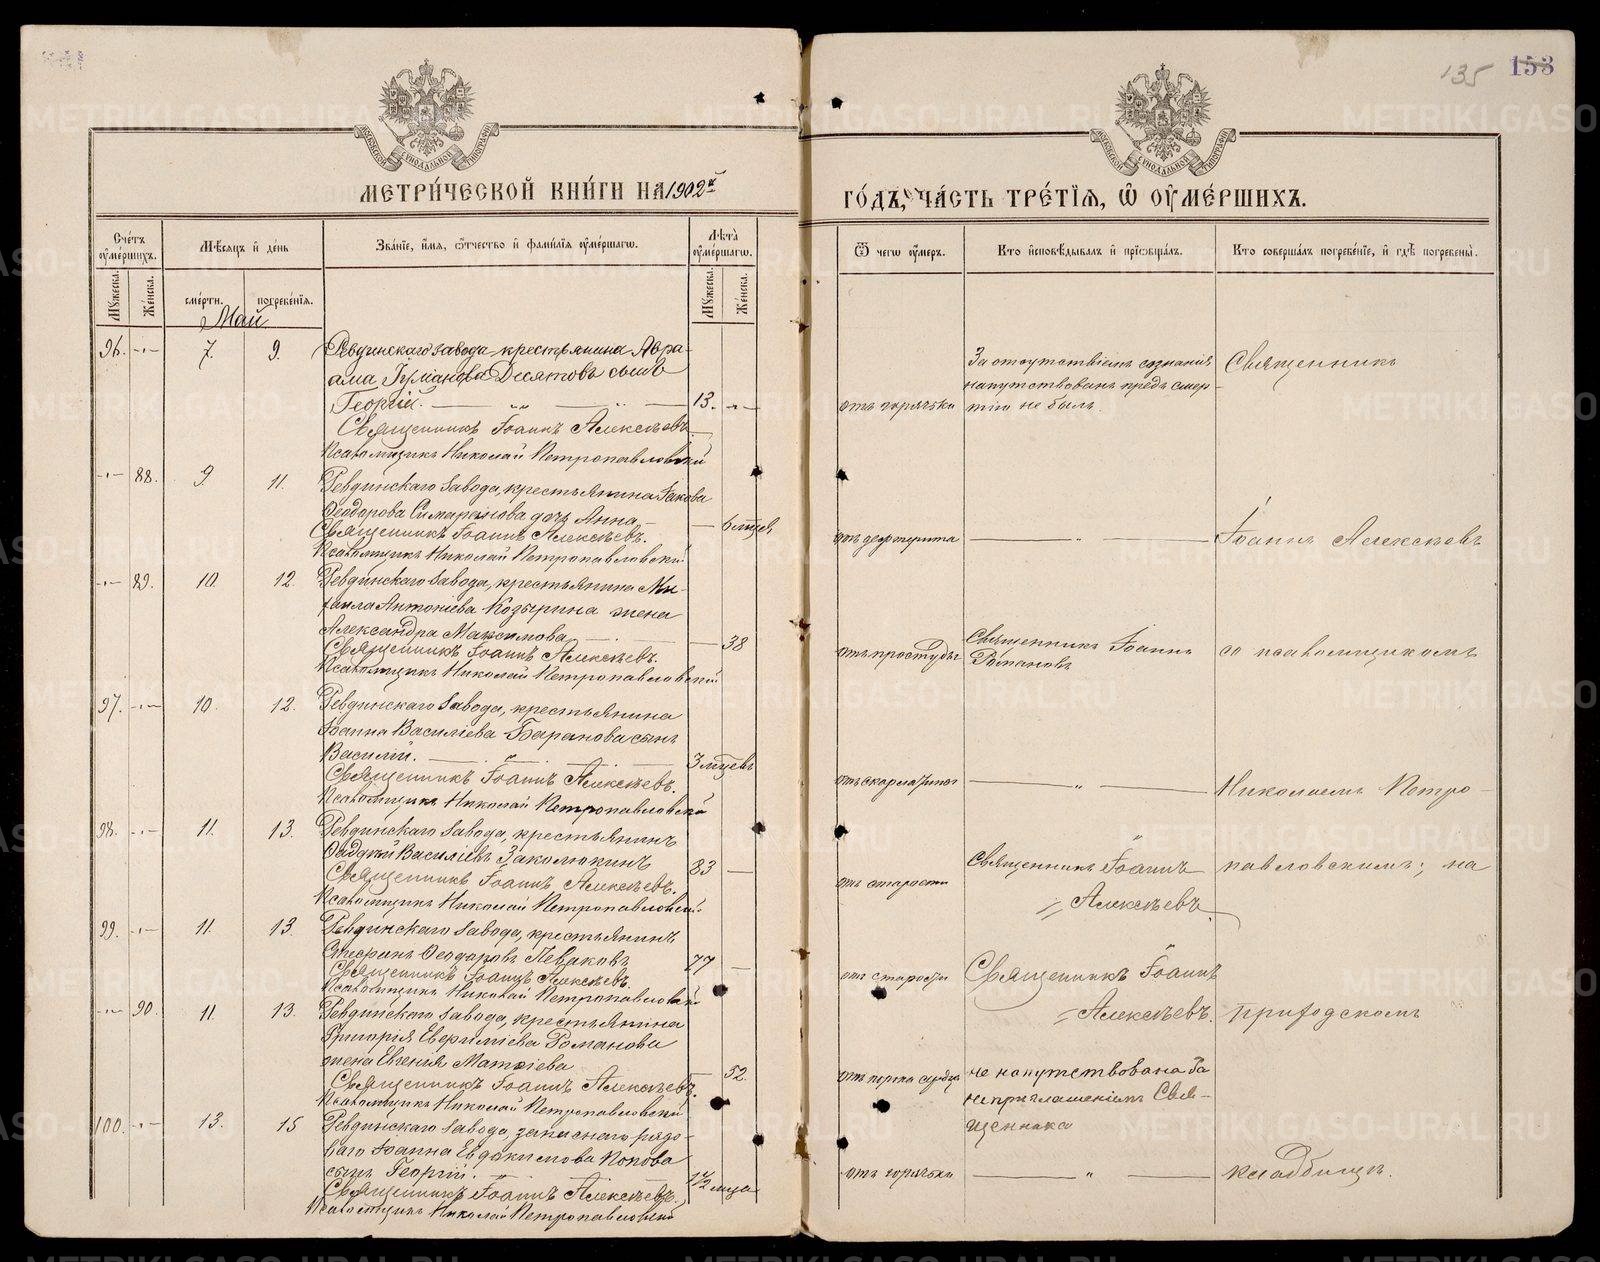 135 153
МЕТРИ́ЧЕСКОЙ КНИ́ГИ НА 1902й
ГО́ДЪ, ЧА́СТЬ ТРЕ́ТІЯ, Ѿ ОУ҆МЕ́РШИХЪ.
Сче́тъ оу҆ме́ршихъ.
Мѣ́сяцъ и де́нь
Зва́нїе, и҆́мя, ѻ҆́тчество и҆ фамилїя оу҆ме́ршагѡ.
Лѣта̀ оу҆ме́ршагѡ.
Ѿ чегѡ оу҆́меръ.
Кто и҆сповѣ́дывалъ и҆ прїѡбща́лъ.
Кто соверша́лъ погребе́нїе, и҆ гдѣ̀ погребены̀.
Мꙋ́жеска. Же́нска. сме́рти. погребе́нїя. Мꙋ́жеска. Же́нска.
Май
96. 7. 9. Ревдинскаго завода крестьянина Авра-
ама Десятовъ сынъ
Георгій. 13.
Священникъ Іоаннъ Алексѣевъ
Псаломщикъ Николай Петропавловскій
отъ горячки
За отсутствіемъ сознанія
напутствованъ предъ смер-
тію не былъ.
Священникъ
88. 9. 11. Ревдинскаго завода, крестьянина Іакова
Ѳеодорова дочь Анна 6 мцев
Священникъ Іоаннъ Алексѣевъ.
Псаломщикъ Николай Петропавловскій
отъ дефтерита
Іоаннъ Алексѣевъ
89. 10. 12. Ревдинскаго завода, крестьянина Ми-
хаила Антоніева Козырина жена
Александра Максимова 38
Священникъ Іоаннъ Алексѣевъ.
Псаломщикъ Николай Петропавловскій
отъ простуды
Священникъ Іоаннъ
Романовъ
со псаломщикомъ
97. 10. 12. Ревдинскаго завода, крестьянина
Іоанна Василіева Баранова сынъ
Василій. 3 мцевъ
Священникъ Іоаннъ Алексѣевъ.
Псаломщикъ Николай Петропавловскій
отъ скарлатины
Николаемъ Петро-
98. 11. 13. Ревдинскаго завода, крестьянинъ
Василіевъ Заколюкинъ 83
Священникъ Іоаннъ Алексѣевъ.
Псаломщикъ Николай Петропавловскій
отъ старости
Священникъ Іоаннъ
Алексѣевъ
павловскимъ; на
99. 11. 13. Ревдинскаго завода, крестьянинъ
Ѳеодоровъ Певаковъ 77
Священникъ Іоаннъ Алексѣевъ.
Псаломщикъ Николай Петропавловскій
отъ старости
Священникъ Іоаннъ
Алексѣевъ.
приходскомъ
90. 11. 13. Ревдинскаго завода, крестьянина
Григорія Евфиміева Романова
жена Евгенія Матѳіева 52.
Священникъ Іоаннъ Алексѣевъ.
Псаломщикъ Николай Петропавловскій
отъ порока сердца
не напутствована за
неприглашеніемъ Свя-
щенника
100. 13. 15 Ревдинскаго завода запаснаго рядо-
ваго Іоанна Евдокимова Попова
сынъ Георгій. 1 1/2 мца
Священникъ Іоаннъ Алексѣевъ.
Псаломщикъ Николай Петропавловскій
отъ горячки
кладбищѣ.